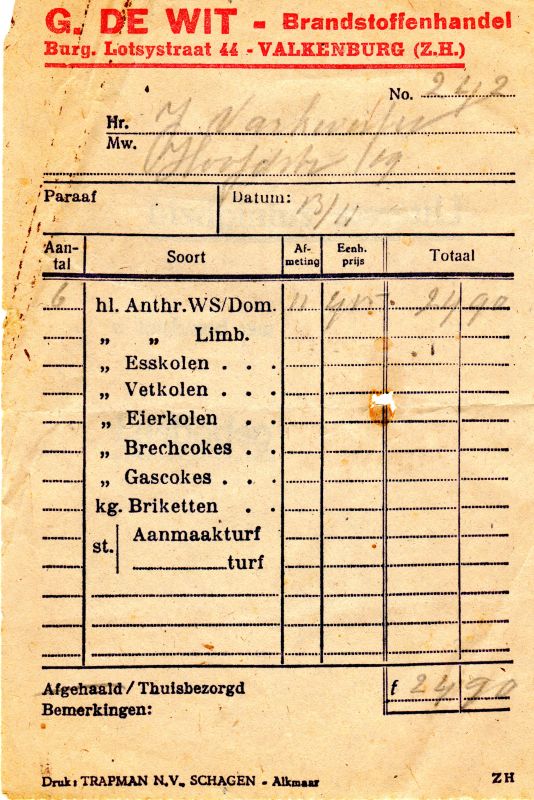 G. DE WIT - Brandstoffenhandel
Burg. Lotsystraat 44 - VALKENBURG (Z.H.)
No. 242
Hr.
Mw.
Hoofdstr
Paraaf Datum: 13/11
Aan-tal Soort Af-meting Eenh. prijs Totaal
6 hl. Anthr. WS/Dom. 11 4,15 24 90
„ „ Limb.
„ Esskolen . . .
„ Vetkolen . . .
„ Eierkolen . .
„ Brechcokes . .
„ Gascokes . . .
kg. Briketten . .
st. Aanmaakturf
turf
Afgehaald / Thuisbezorgd f 24 90
Bemerkingen:
Druk: TRAPMAN N.V., SCHAGEN - Alkmaar ZH